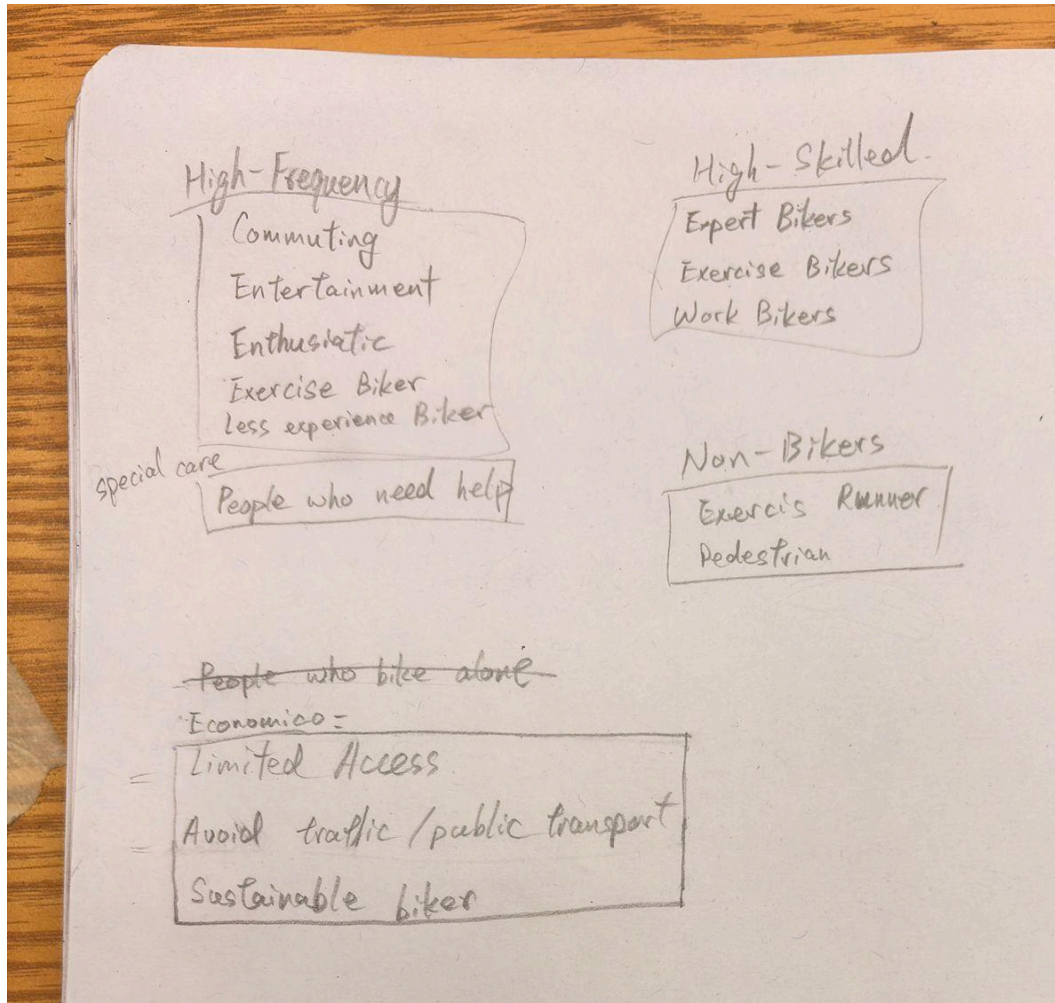 High-Frequency
Commuting
Entertainment
Enthusiatic
Exercise Biker
Less experience Biker
special care
People who need help
High-Skilled.
Expert Bikers
Exercise Bikers
Work Bikers
Non-Bikers
Exercis Runner
Pedestrian
People who bike alone
Economico=
= Limited Access
= Avoid traffic/public transport
Sustainable biker